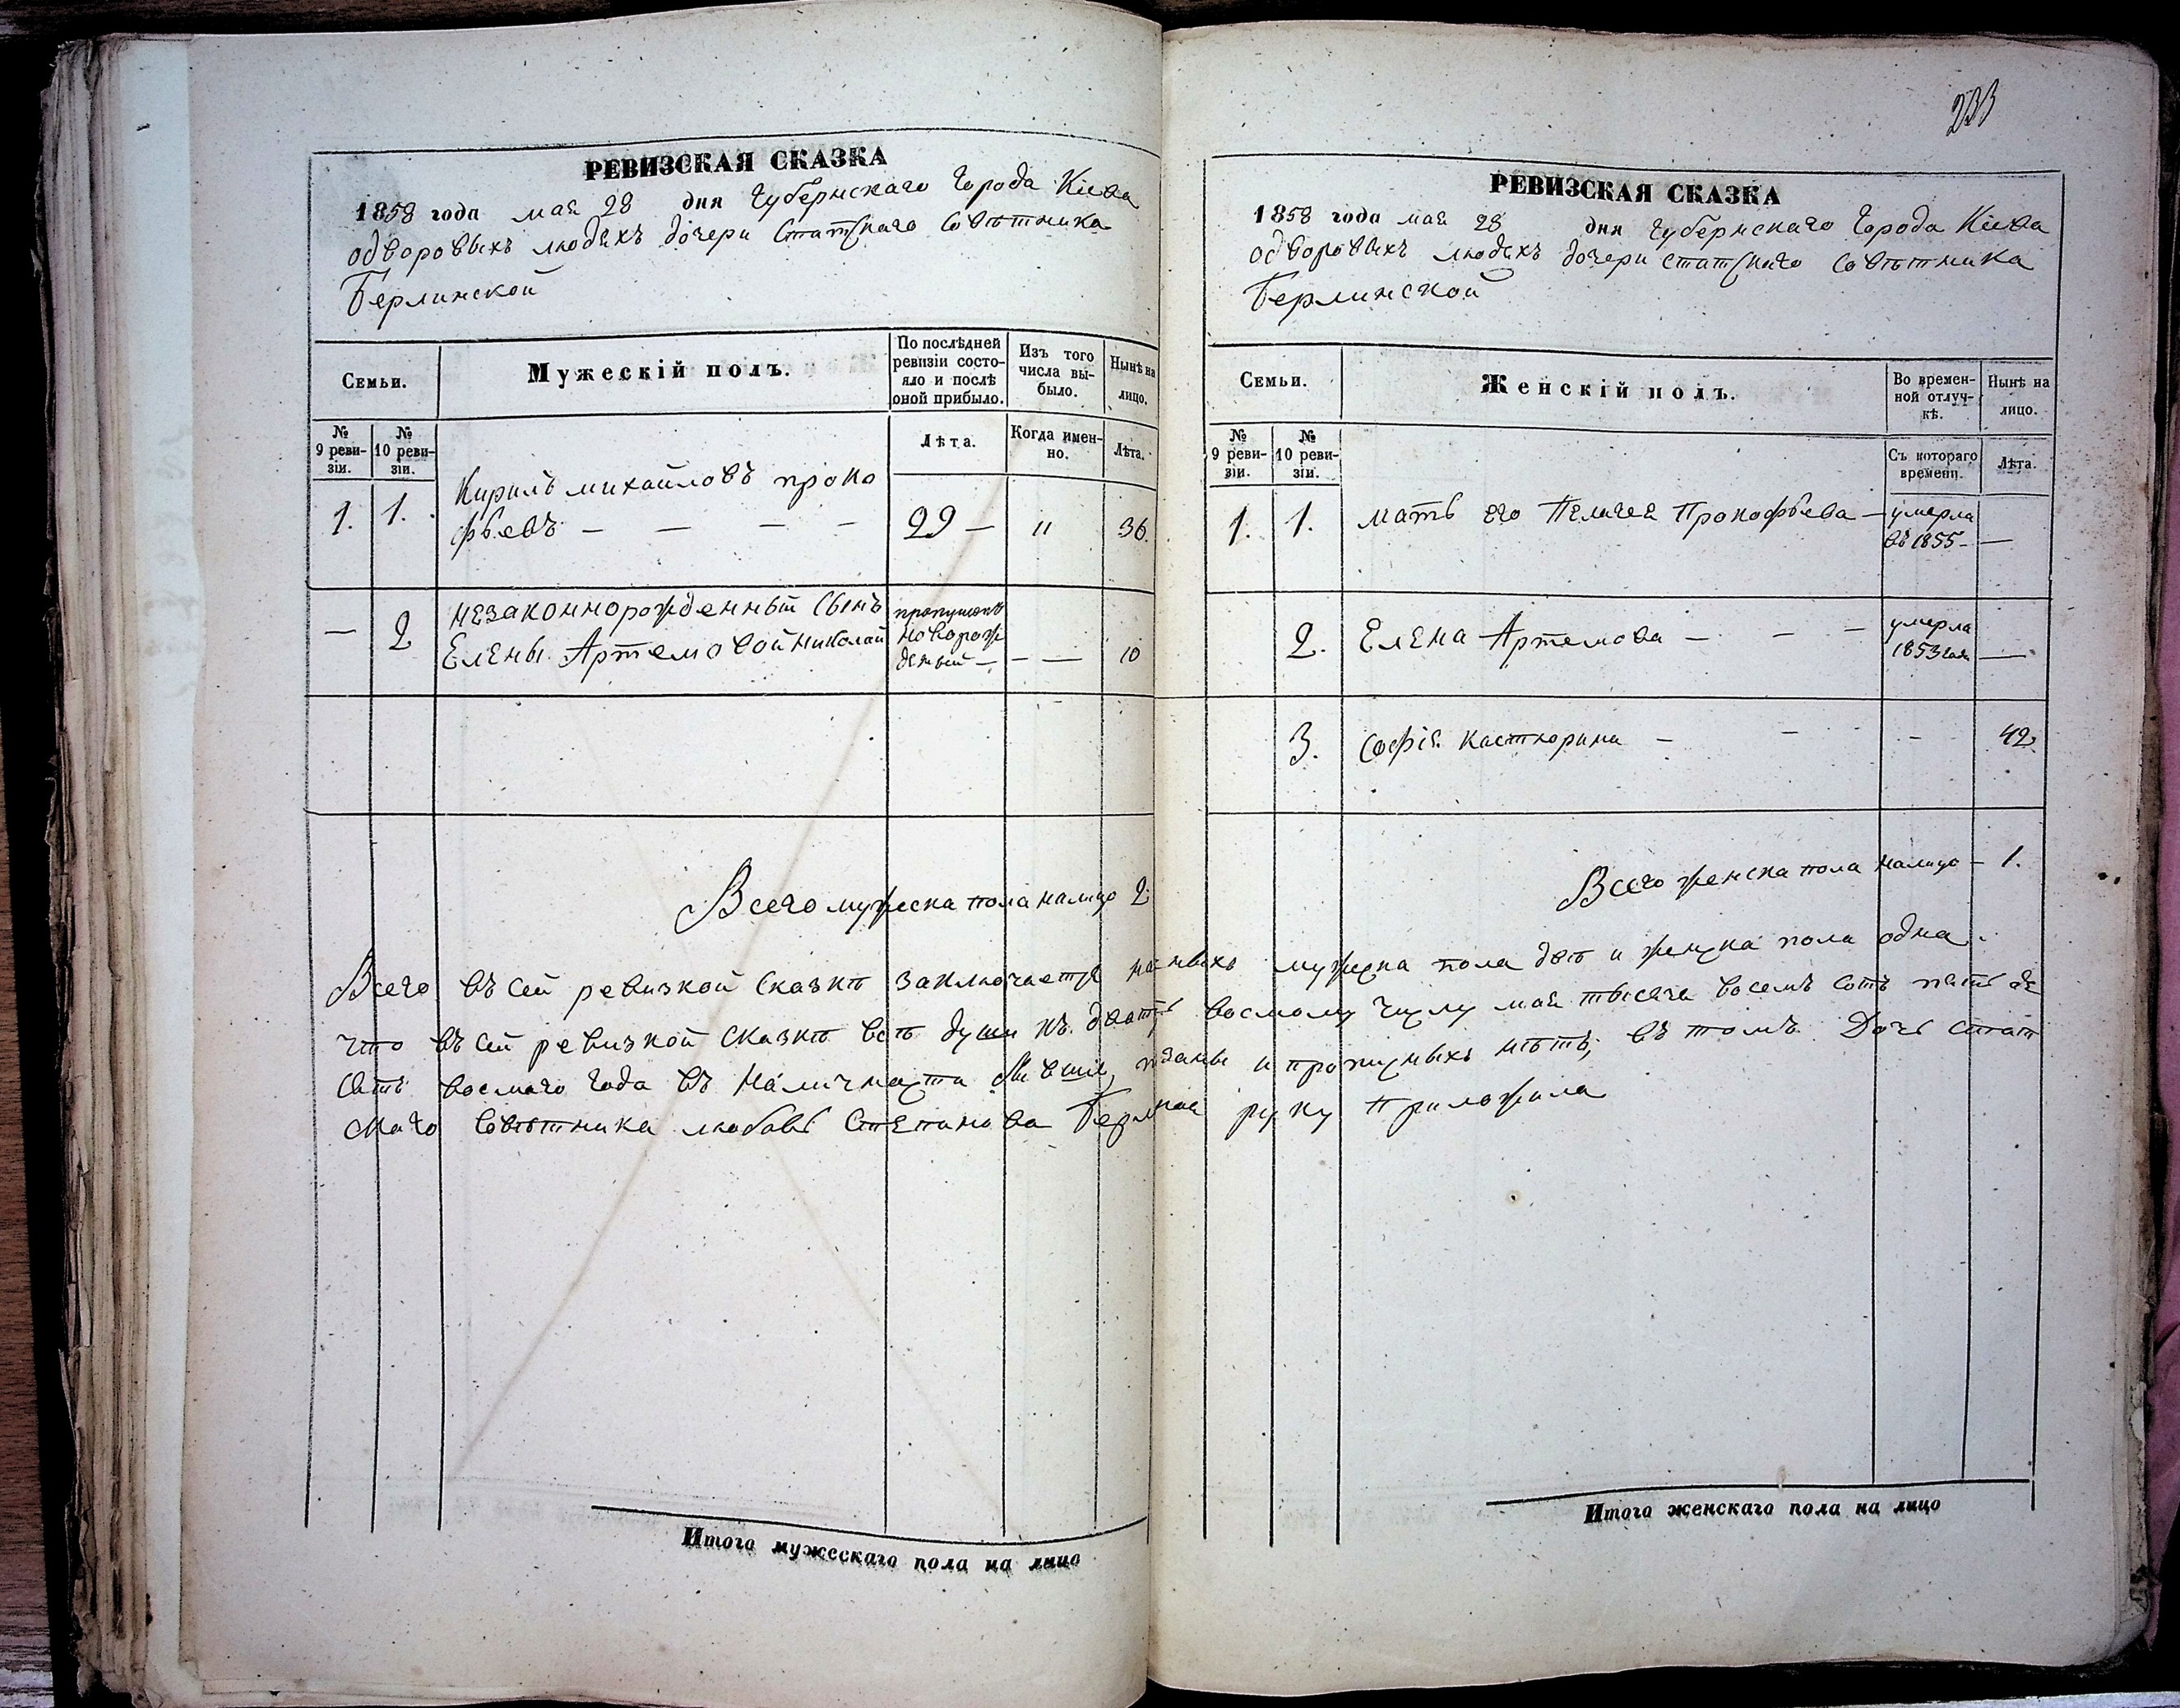 РЕВИЗСКАЯ СКАЗКА
1858 года мая 28 дня Губернскаго Города Кіева
одворовыхъ людяхъ дочери Статскаго Совѣтника
Берлинской
Семьи.
Мужескій полъ.
По послѣдней
ревизіи состо-
яло и послѣ
оной прибыло.
Изъ того
числа вы-
было.
Нынѣ на
лицо.
№
9 реви-
зіи.
№
10 реви-
зіи.
Лѣта.
Когда имен-
но.
Лѣта.
Кирилъ михайловъ проко
1. 1. фьевъ — — — — 29 — 11 36.
незаконнорожденный Сынъ
— 2 Елены Артемовой николай
новорож
деный — — — 10
Всего мужеска пола налицо 2
233
РЕВИЗСКАЯ СКАЗКА
1858 года мая 28 дня Губернскаго Города Кіева
одворовыхъ людяхъ дочери статскаго совѣтника
Берлинской
Семьи.
Женскій полъ.
Во времен-
ной отлуч-
кѣ.
Нынѣ на
лицо.
№
9 реви-
зіи.
№
10 реви-
зіи.
Съ котораго
времени.
Лѣта.
1. 1. мать его Пелагея Прокофьева — умерла
въ 1855 — —
2. Елена Артемова — — — умерла
1853 —
3. Софія Кастюрина — — — 42
Всего женска пола налицо — 1.
Всего въ сей ревизкой сказкѣ заключается мужеска пола двѣ и женска пола одна.
что въ сей ревизкой сказкѣ всѣ души къ восмому числу мая тысяча восемъ сотъ пять де
сятъ восмаго года въ и прописныхъ нѣтъ, въ томъ Дочь стат
скаго Совѣтника любовь Степанова руку приложила
Итого мужескаго пола на лицо
Итого женскаго пола на лицо